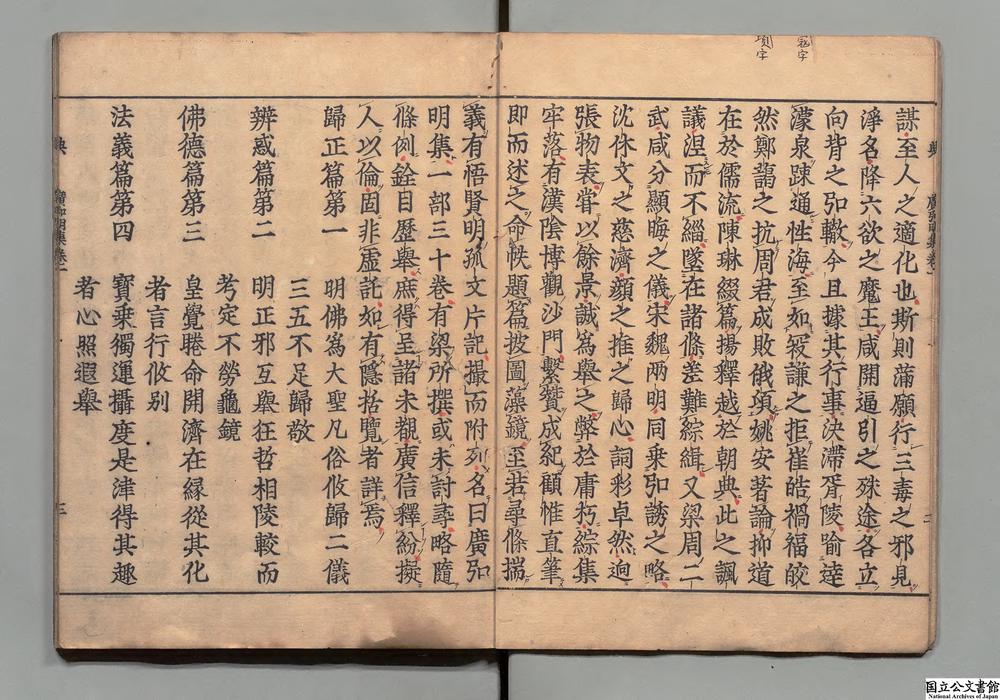 冦字
項字
謀至人之適化也斯則蒲願行三毒之邪見
淨名降六欲之魔王咸開逼引之殊途各立
向背之弘轍今且據其行事決滯胥陵喻達
濛泉踈通性海至如寇謙之拒崔皓禍福皎
然鄭藹之抗周君成敗俄項姚安著論抑道
在於儒流陳琳綴篇揚釋越於朝典此之諷
議涅而不緇墜在諸條差難綜緝又梁周二
武咸分顯晦之儀宋魏兩明同乗弘誘之略
沈休文之慈濟顔之推之歸心詞彩卓然迥
張物表甞以餘景試爲舉之弊於庸朽綜集
牢落有漢陰博觀沙門繫賛成紀顧惟直筆
即而述之命帙題篇披圖藻鏡至若尋條揣
義有悟賢明孤文片記撮而附列名曰廣弘
明集一部三十卷有梁所撰或未討尋略隨
條例銓目歷舉庶得呈諸未覩廣信釋紛擬
人以倫固非虛託如有隱括覽者詳焉
歸正篇第一 明佛爲大聖凡俗攸歸二儀
三五不足歸敬
辨惑篇第二 明正邪互舉狂哲相陵較而
考定不勞龜鏡
佛德篇第三 皇覺睠命開濟在緣從其化
者言行攸別
法義篇第四 寶乗獨運攝度是津得其趣
者心照遐舉
三
国立公文書館
National Archives of Japan